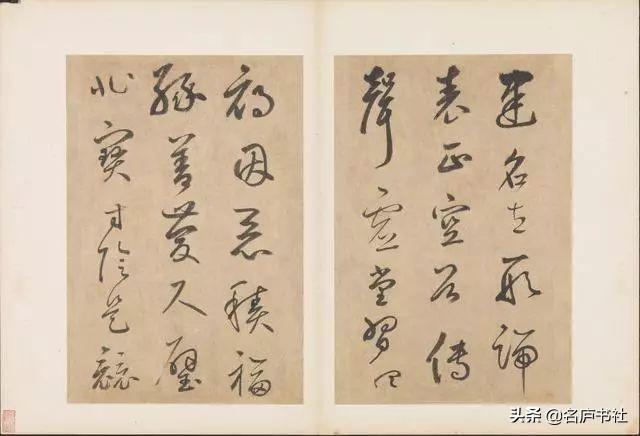 建名立形端
表正空谷傳
聲虛堂習聽
禍因惡積福
緣善慶尺璧
非寶寸陰是競
头条 @名庐书社